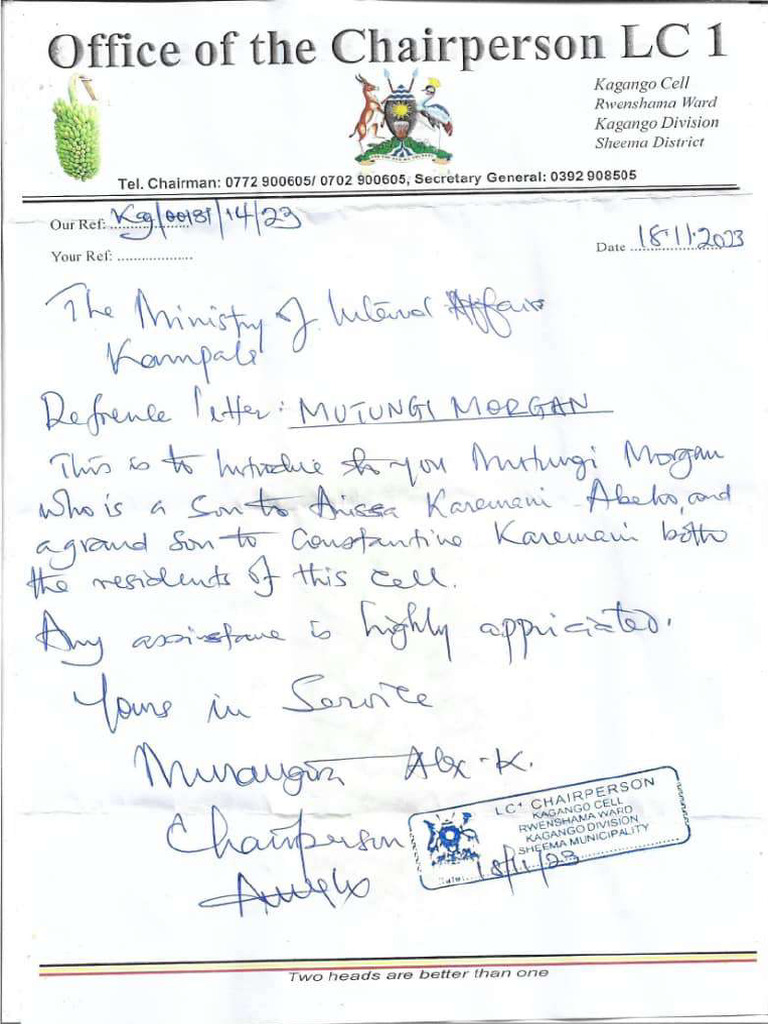 Office of the Chairperson LC 1
Kagango Cell
Rwenshama Ward
Kagango Division
Sheema District
Tel. Chairman: 0772 900605/ 0702 900605, Secretary General: 0392 908505
Our Ref: Kag/00131/14/23
Your Ref: ..................
Date 18.11.2023
The Ministry of Internal Affairs
Kampala
Refrence letter: MUTUNGI MORGAN
This is to Introduce to you Mutungi Morgan
who is a Son to Karemani and
a grand Son to Constantine Karemani both
the residents of this Cell.
Any assistance is highly appriciated.
Yours in Service
Alex K.
Chairperson
LC1 CHAIRPERSON
KAGANGO CELL
RWENSHAMA WARD
KAGANGO DIVISION
SHEEMA MUNICIPALITY
Date: 18/11/23
Two heads are better than one